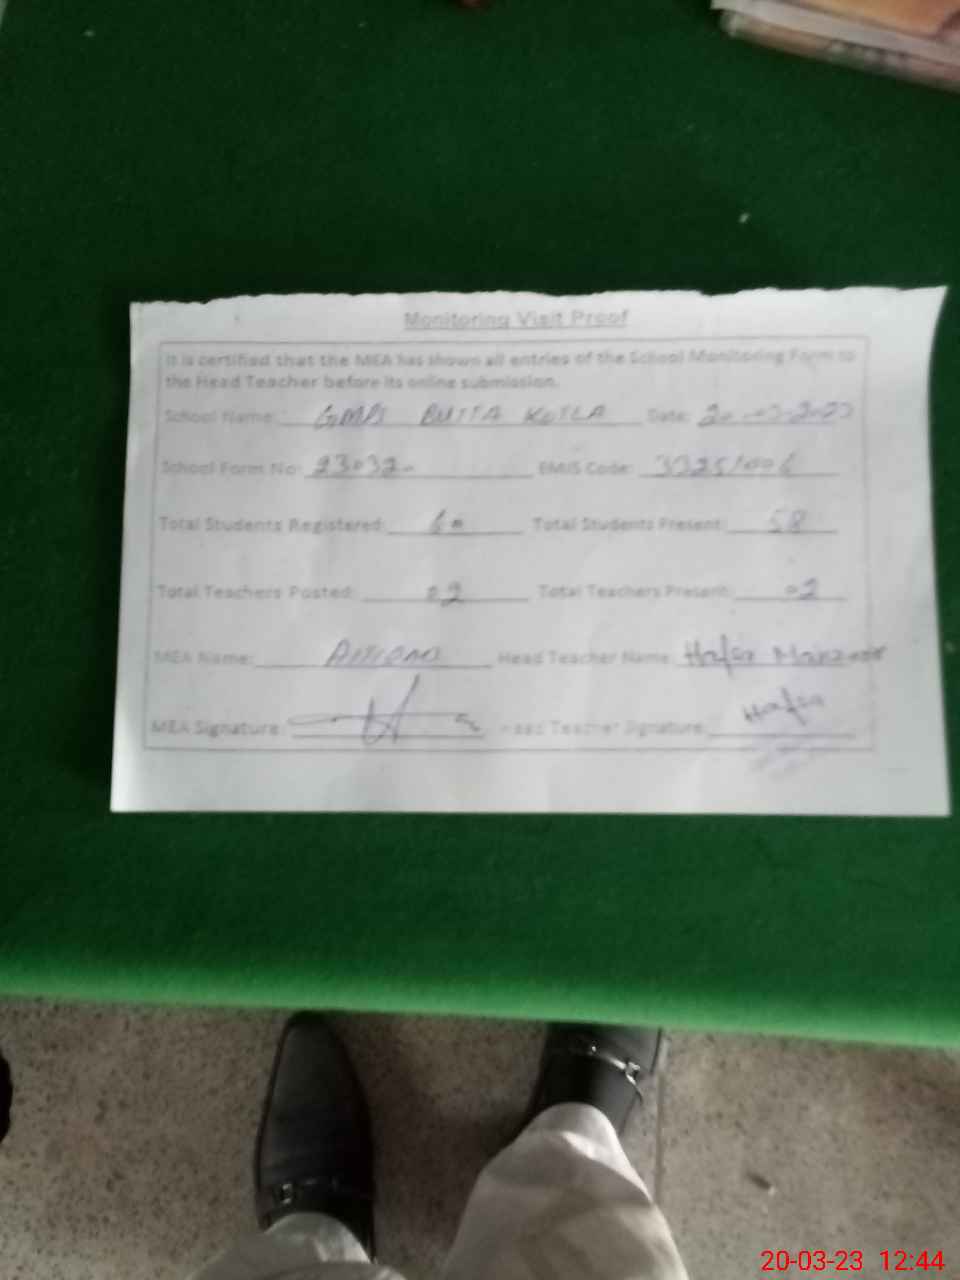 Monitoring Visit Proof
It is certified that the MEA has shown all entries of the School Monitoring Form to
the Head Teacher before its online submission.
School Name: GMPS BUTTA KOTLA Date: 20-03-2023
School Form No: 230320 EMIS Code:
Total Students Registered: 60 Total Students Present: 58
Total Teachers Posted: 02 Total Teachers Present: 02
MEA Name: Head Teacher Name: Hafsa Manzoor
MEA Signature: Head Teacher Signature: Hafsa
20-03-23 12:44